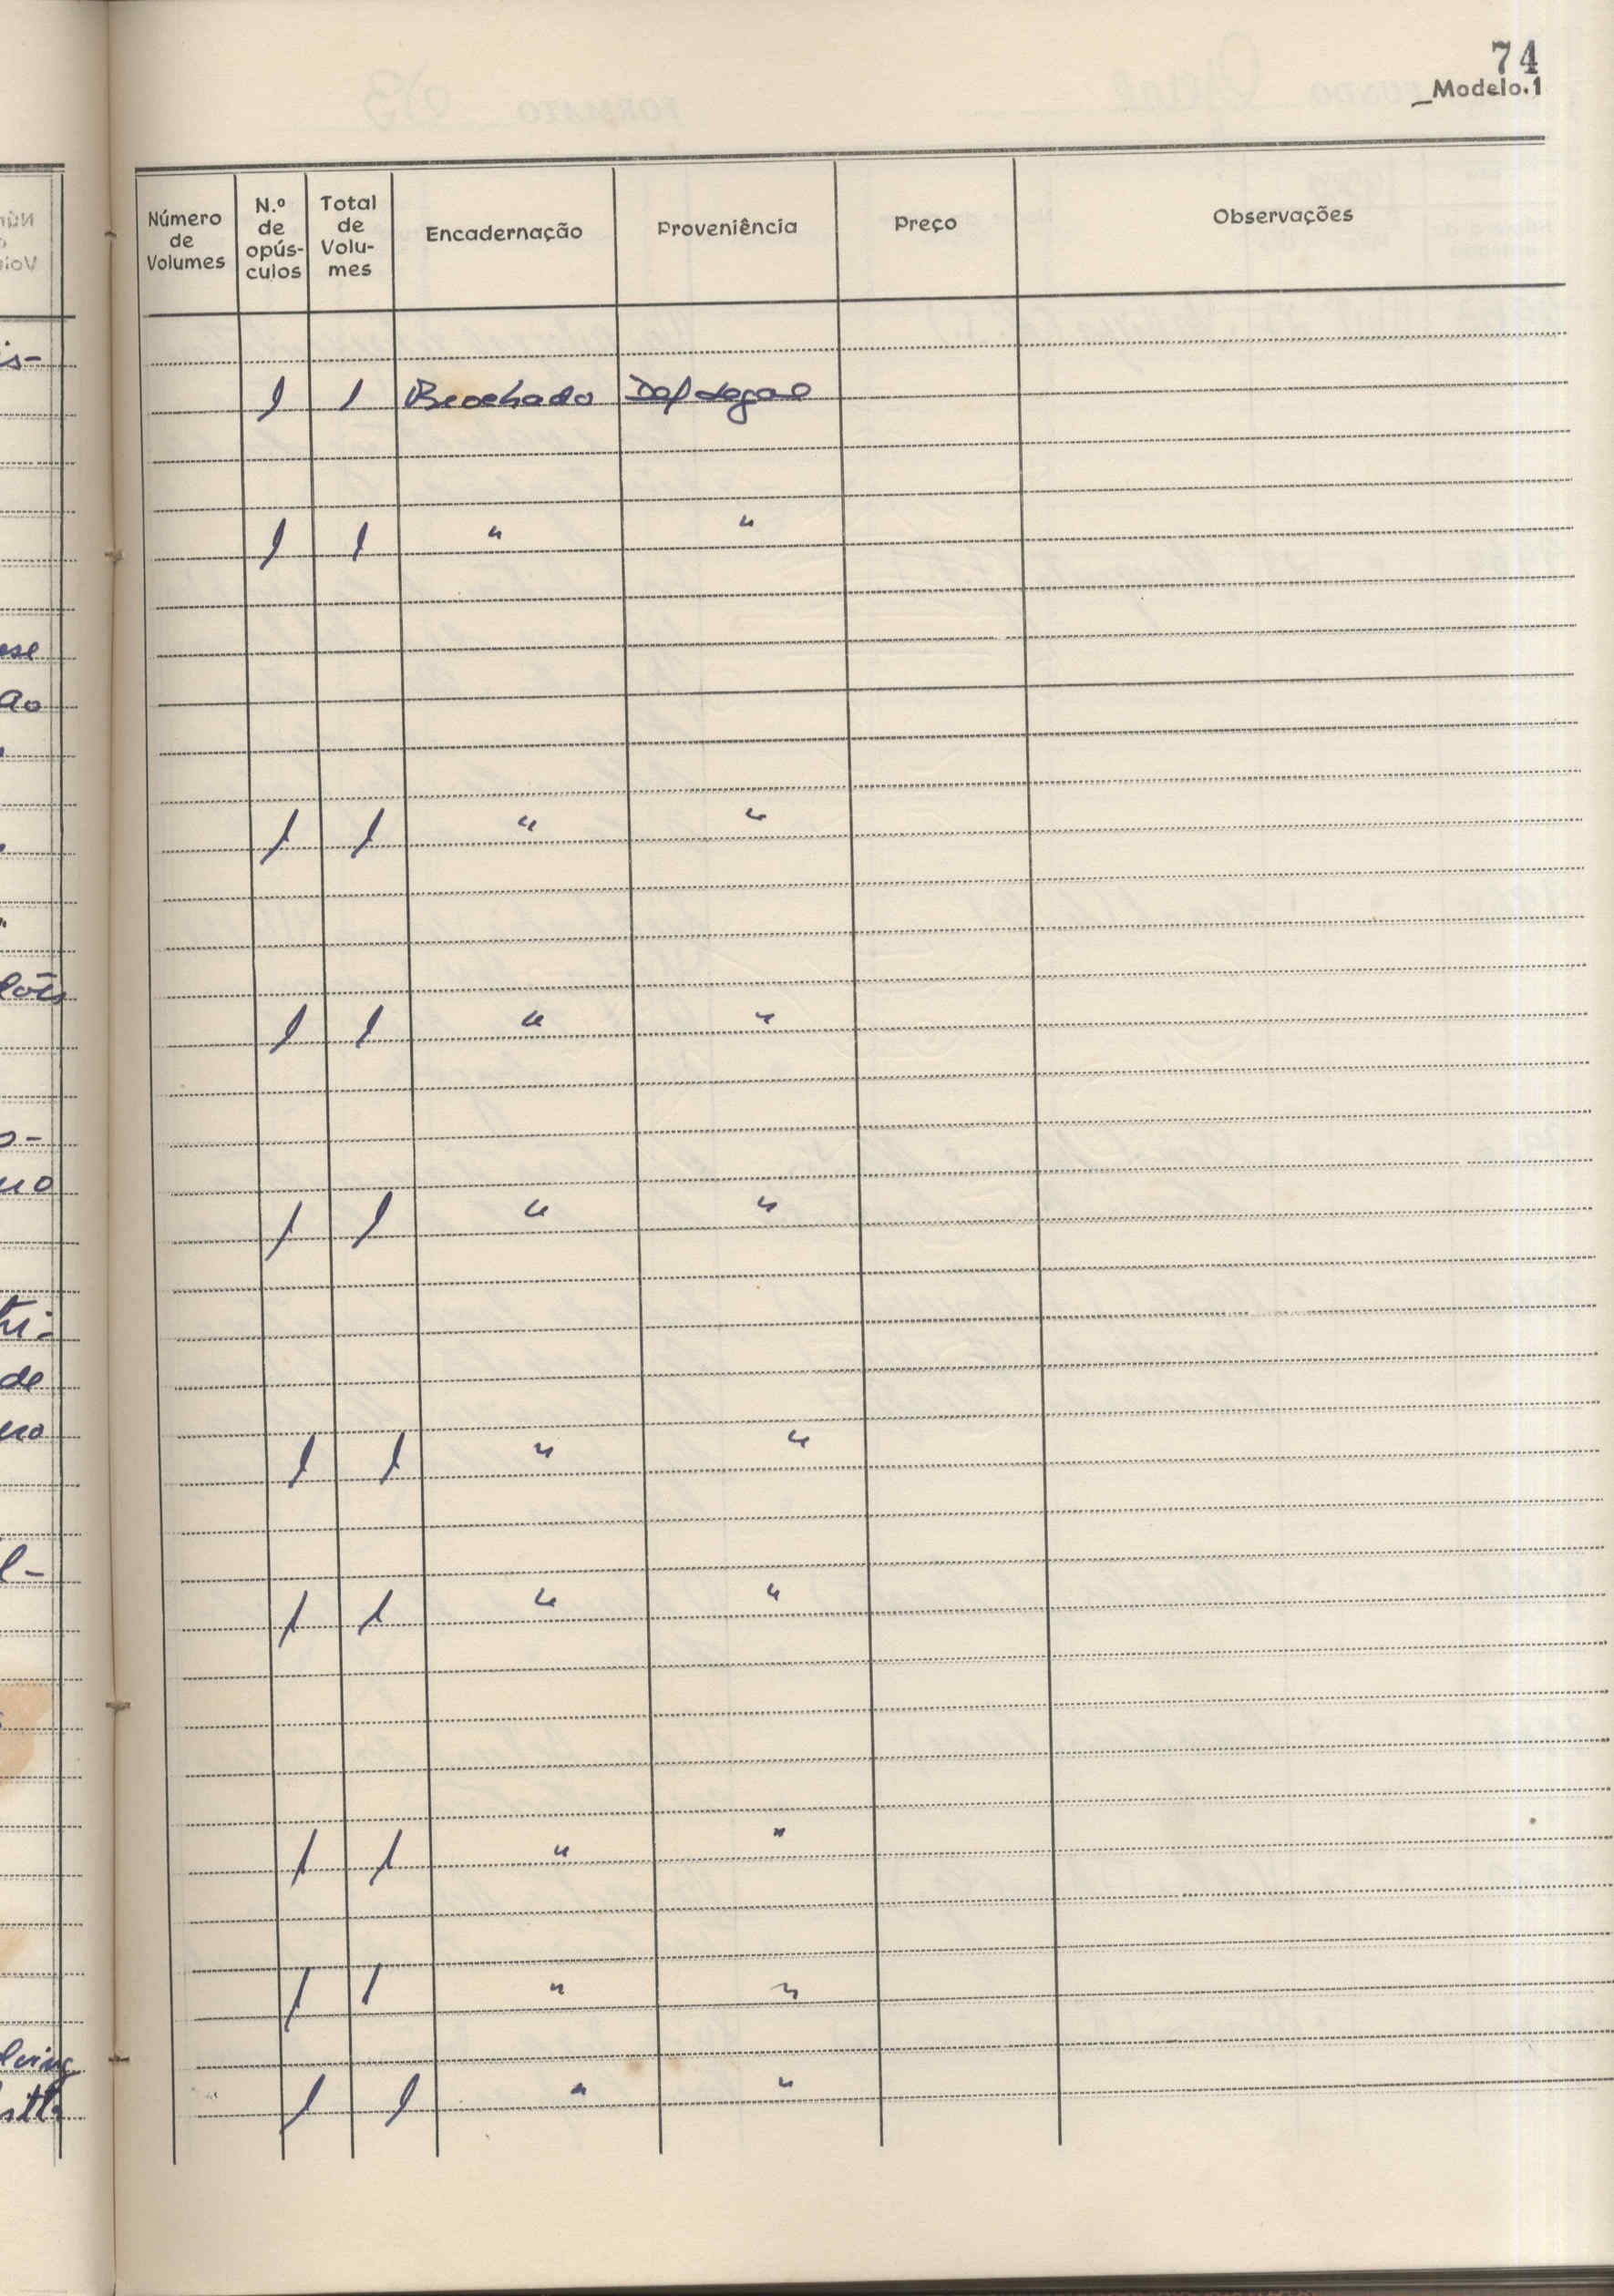 74
Modelo.1
Número de Volumes
N.º de opús-culos
Total de Volu-mes
Encadernação
Proveniência
Preço
Observações
is-
1 1 Brochado Dep Legal
1 1 " "
ese
ao
1 1 " "
1 1 " "
o-
no
1 1 " "
de
1 1 " "
l-
1 1 " "
1 1 " "
1 1 " "
1 1 " "